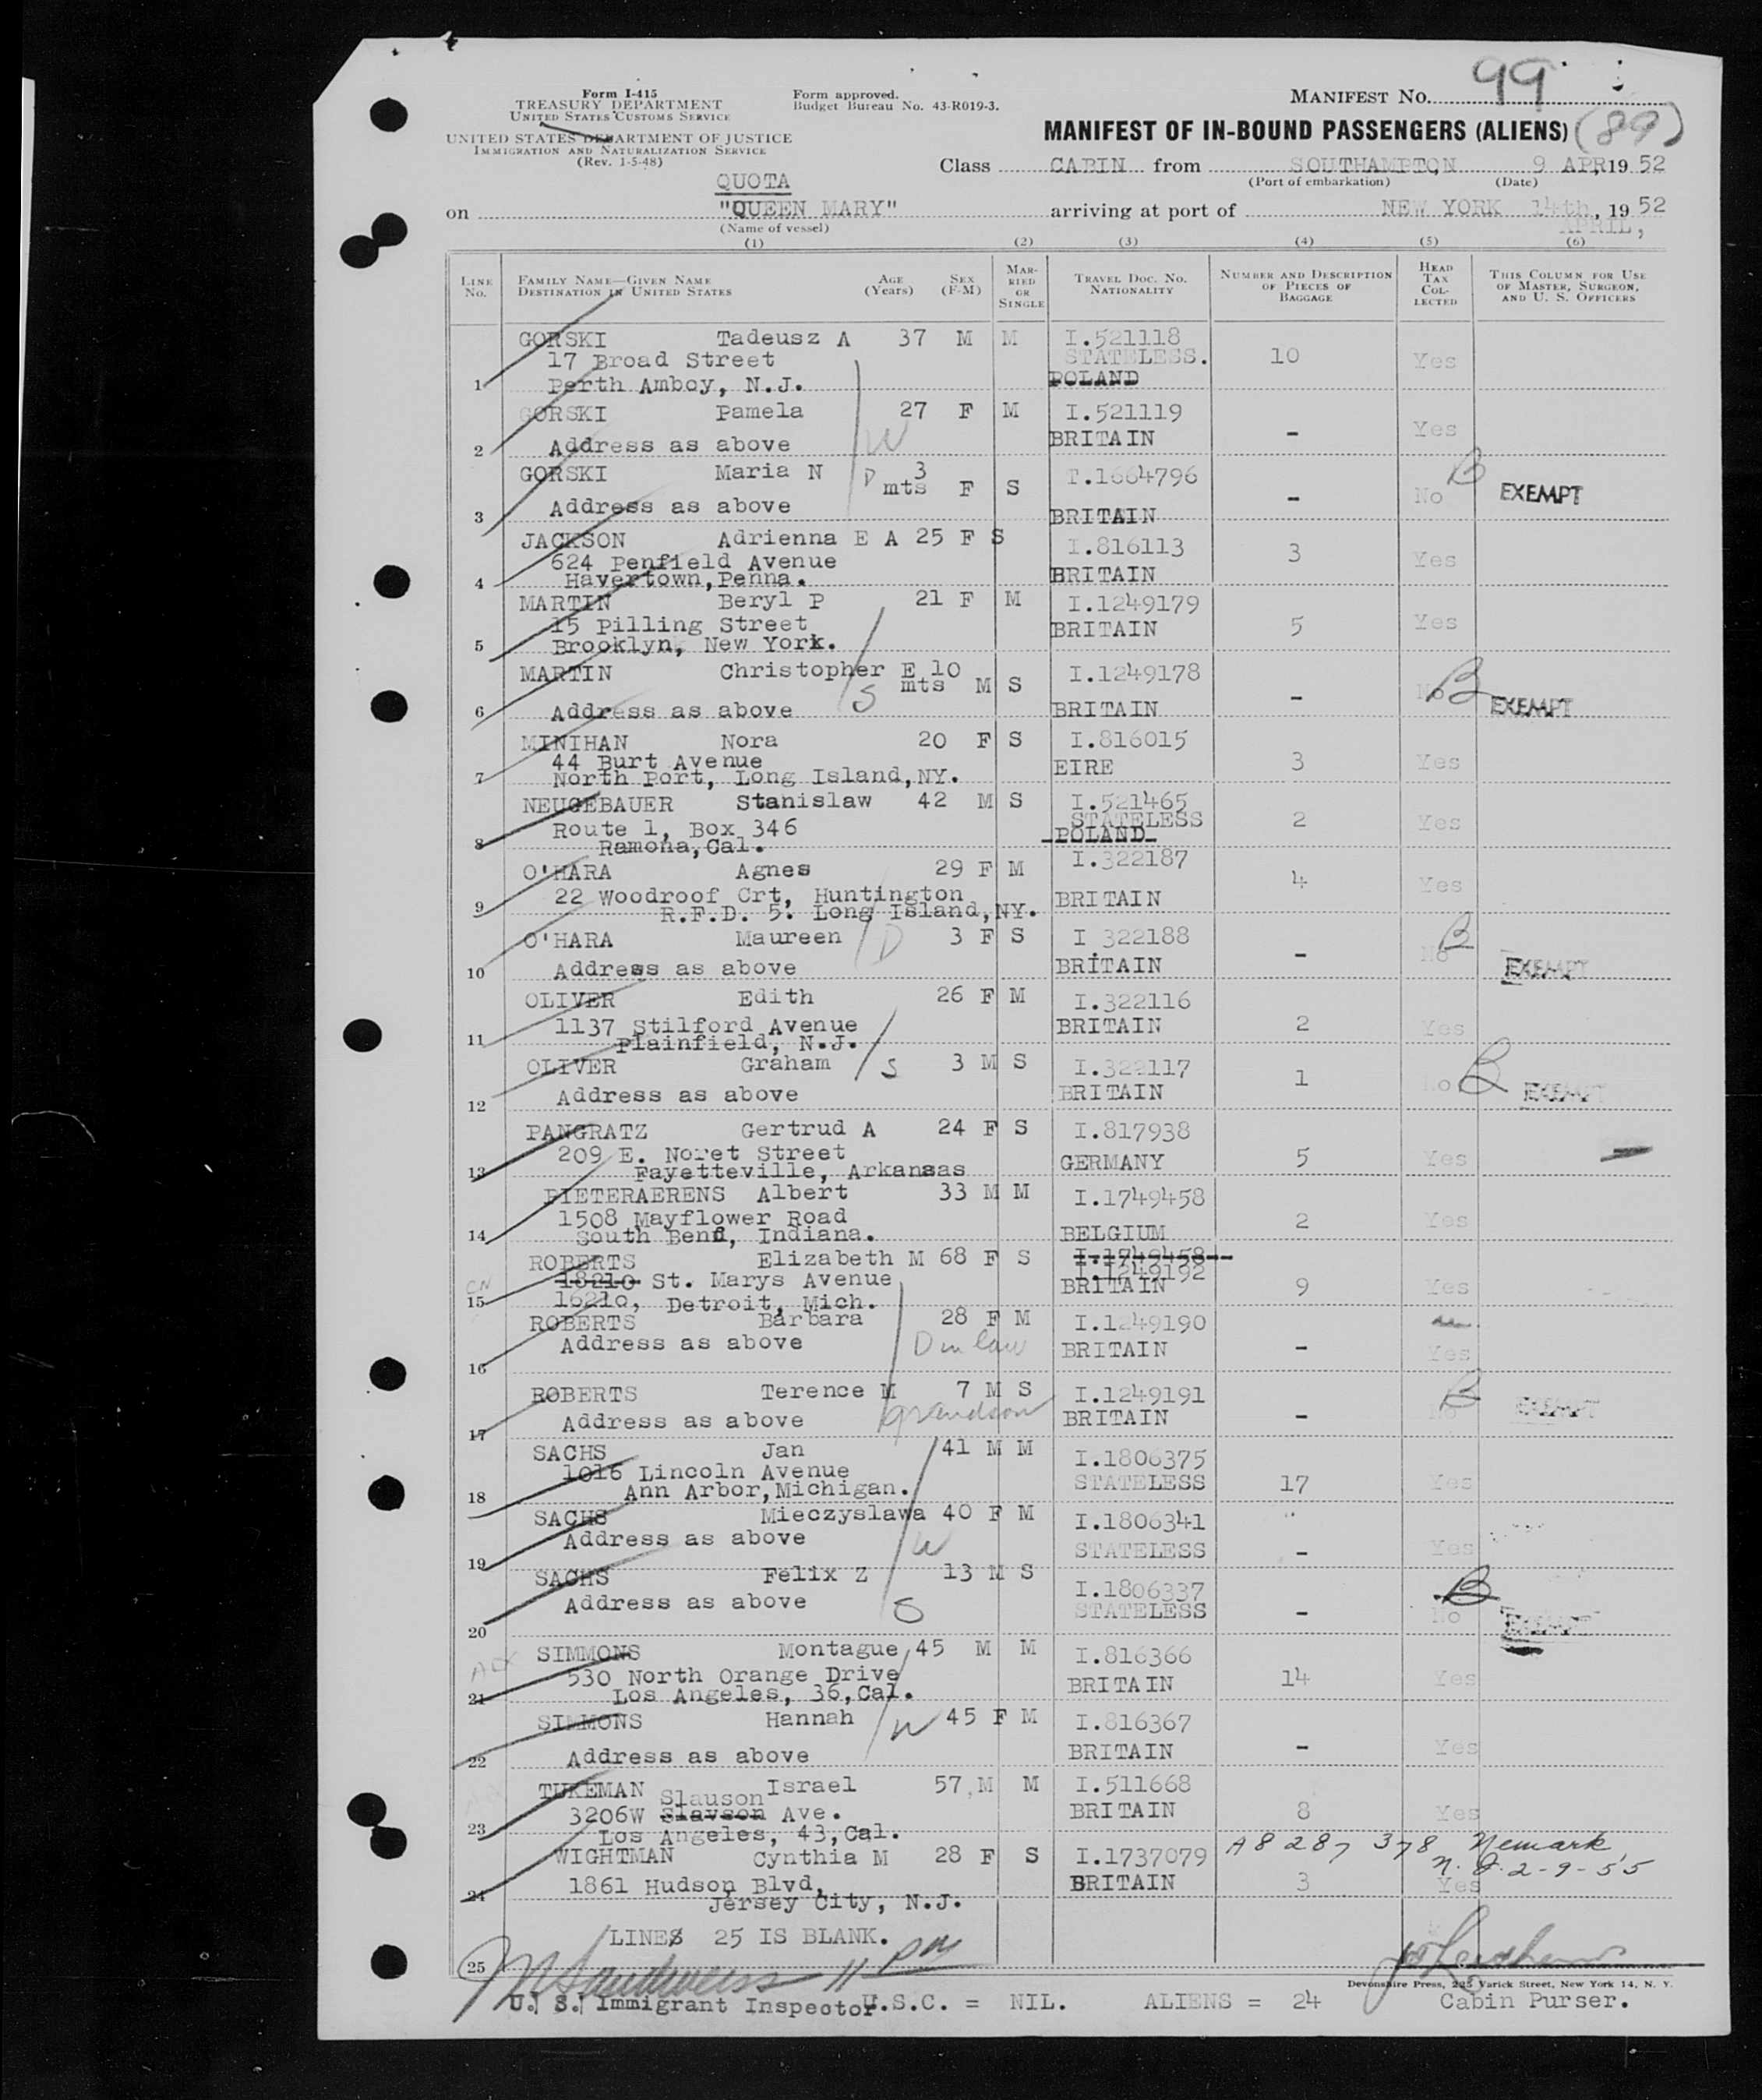 99
(89)
Form I-415
TREASURY DEPARTMENT
UNITED STATES CUSTOMS SERVICE
UNITED STATES DEPARTMENT OF JUSTICE
IMMIGRATION AND NATURALIZATION SERVICE
(Rev. 1-5-48)
Form approved.
Budget Bureau No. 43-R019-3.
MANIFEST NO.
MANIFEST OF IN-BOUND PASSENGERS (ALIENS)
Class CABIN from SOUTHAMPTON, 9 APR, 19 52
(Port of embarkation) (Date)
QUOTA
on "QUEEN MARY" arriving at port of NEW YORK 14th, 19 52
APRIL,
(Name of vessel)
(1) (2) (3) (4) (5) (6)
LINE NO. FAMILY NAME—GIVEN NAME DESTINATION IN UNITED STATES AGE (Years) SEX (F-M) MARRIED OR SINGLE TRAVEL DOC. NO. NATIONALITY NUMBER AND DESCRIPTION OF PIECES OF BAGGAGE HEAD TAX COLLECTED THIS COLUMN FOR USE OF MASTER, SURGEON, AND U. S. OFFICERS
GORSKI Tadeusz A 37 M M I.521118
17 Broad Street STATELESS. 10 Yes
1 Perth Amboy, N.J. POLAND
GORSKI Pamela 27 F M I.521119
W - Yes
2 Address as above BRITAIN
GORSKI Maria N D 3 mts F S T.1664796
- No B EXEMPT
3 Address as above BRITAIN
JACKSON Adrienna E A 25 F S I.816113
624 Penfield Avenue 3 Yes
4 Havertown, Penna. BRITAIN
MARTIN Beryl P 21 F M I.1249179
15 Pilling Street BRITAIN 5 Yes
5 Brooklyn, New York.
MARTIN Christopher E 10 mts M S I.1249178
S - No B EXEMPT
6 Address as above BRITAIN
MINIHAN Nora 20 F S I.816015
44 Burt Avenue EIRE 3 Yes
7 North Port, Long Island, NY.
NEUGEBAUER Stanislaw 42 M S I.521465
Route 1, Box 346 STATELESS 2 Yes
8 Ramona, Cal. POLAND
O'HARA Agnes 29 F M I.322187
22 Woodroof Crt, Huntington BRITAIN 4 Yes
9 R.F.D. 5. Long Island, NY.
O'HARA Maureen D 3 F S I.322188
- No B EXEMPT
10 Address as above BRITAIN
OLIVER Edith 26 F M I.322116
1137 Stilford Avenue BRITAIN 2 Yes
11 Plainfield, N.J.
OLIVER Graham S 3 M S I.322117
1 No B EXEMPT
12 Address as above BRITAIN
PANGRATZ Gertrud A 24 F S I.817938
209 E. Noret Street GERMANY 5 Yes
13 Fayetteville, Arkansas
PIETERAERENS Albert 33 M M I.1749458
1508 Mayflower Road 2 Yes
14 South Bend, Indiana. BELGIUM
ROBERTS Elizabeth M 68 F S I.1749458--
CN 18210 St. Marys Avenue I.1249192
BRITAIN 9 Yes
15 16210, Detroit, Mich.
ROBERTS Barbara 28 F M I.1249190
Address as above D in law BRITAIN - Yes
16
ROBERTS Terence M 7 M S I.1249191
Address as above grandson BRITAIN - No B EXEMPT
17
SACHS Jan 41 M M I.1806375
1016 Lincoln Avenue STATELESS 17 Yes
18 Ann Arbor, Michigan.
SACHS Mieczyslawa 40 F M I.1806341
Address as above W STATELESS - Yes
19
SACHS Felix Z 13 M S I.1806337
Address as above S STATELESS - No B EXEMPT
20
SIMMONS Montague 45 M M I.816366
530 North Orange Drive BRITAIN 14 Yes
21 Los Angeles, 36, Cal.
SIMMONS Hannah W 45 F M I.816367
22 Address as above BRITAIN - Yes
TUKEMAN Israel 57 M M I.511668
Slauson
3206W Slavson Ave. BRITAIN 8 Yes
23 Los Angeles, 43, Cal.
WIGHTMAN Cynthia M 28 F S I.1737079 A8 287 378 Newark,
N.J. 2-9-55
1861 Hudson Blvd, BRITAIN 3 Yes
24 Jersey City, N.J.
LINES 25 IS BLANK.
25 M Sandweiss 11 PM
Devonshire Press, 225 Varick Street, New York 14, N. Y.
U. S. Immigrant Inspector U.S.C. = NIL. ALIENS = 24 Cabin Purser.